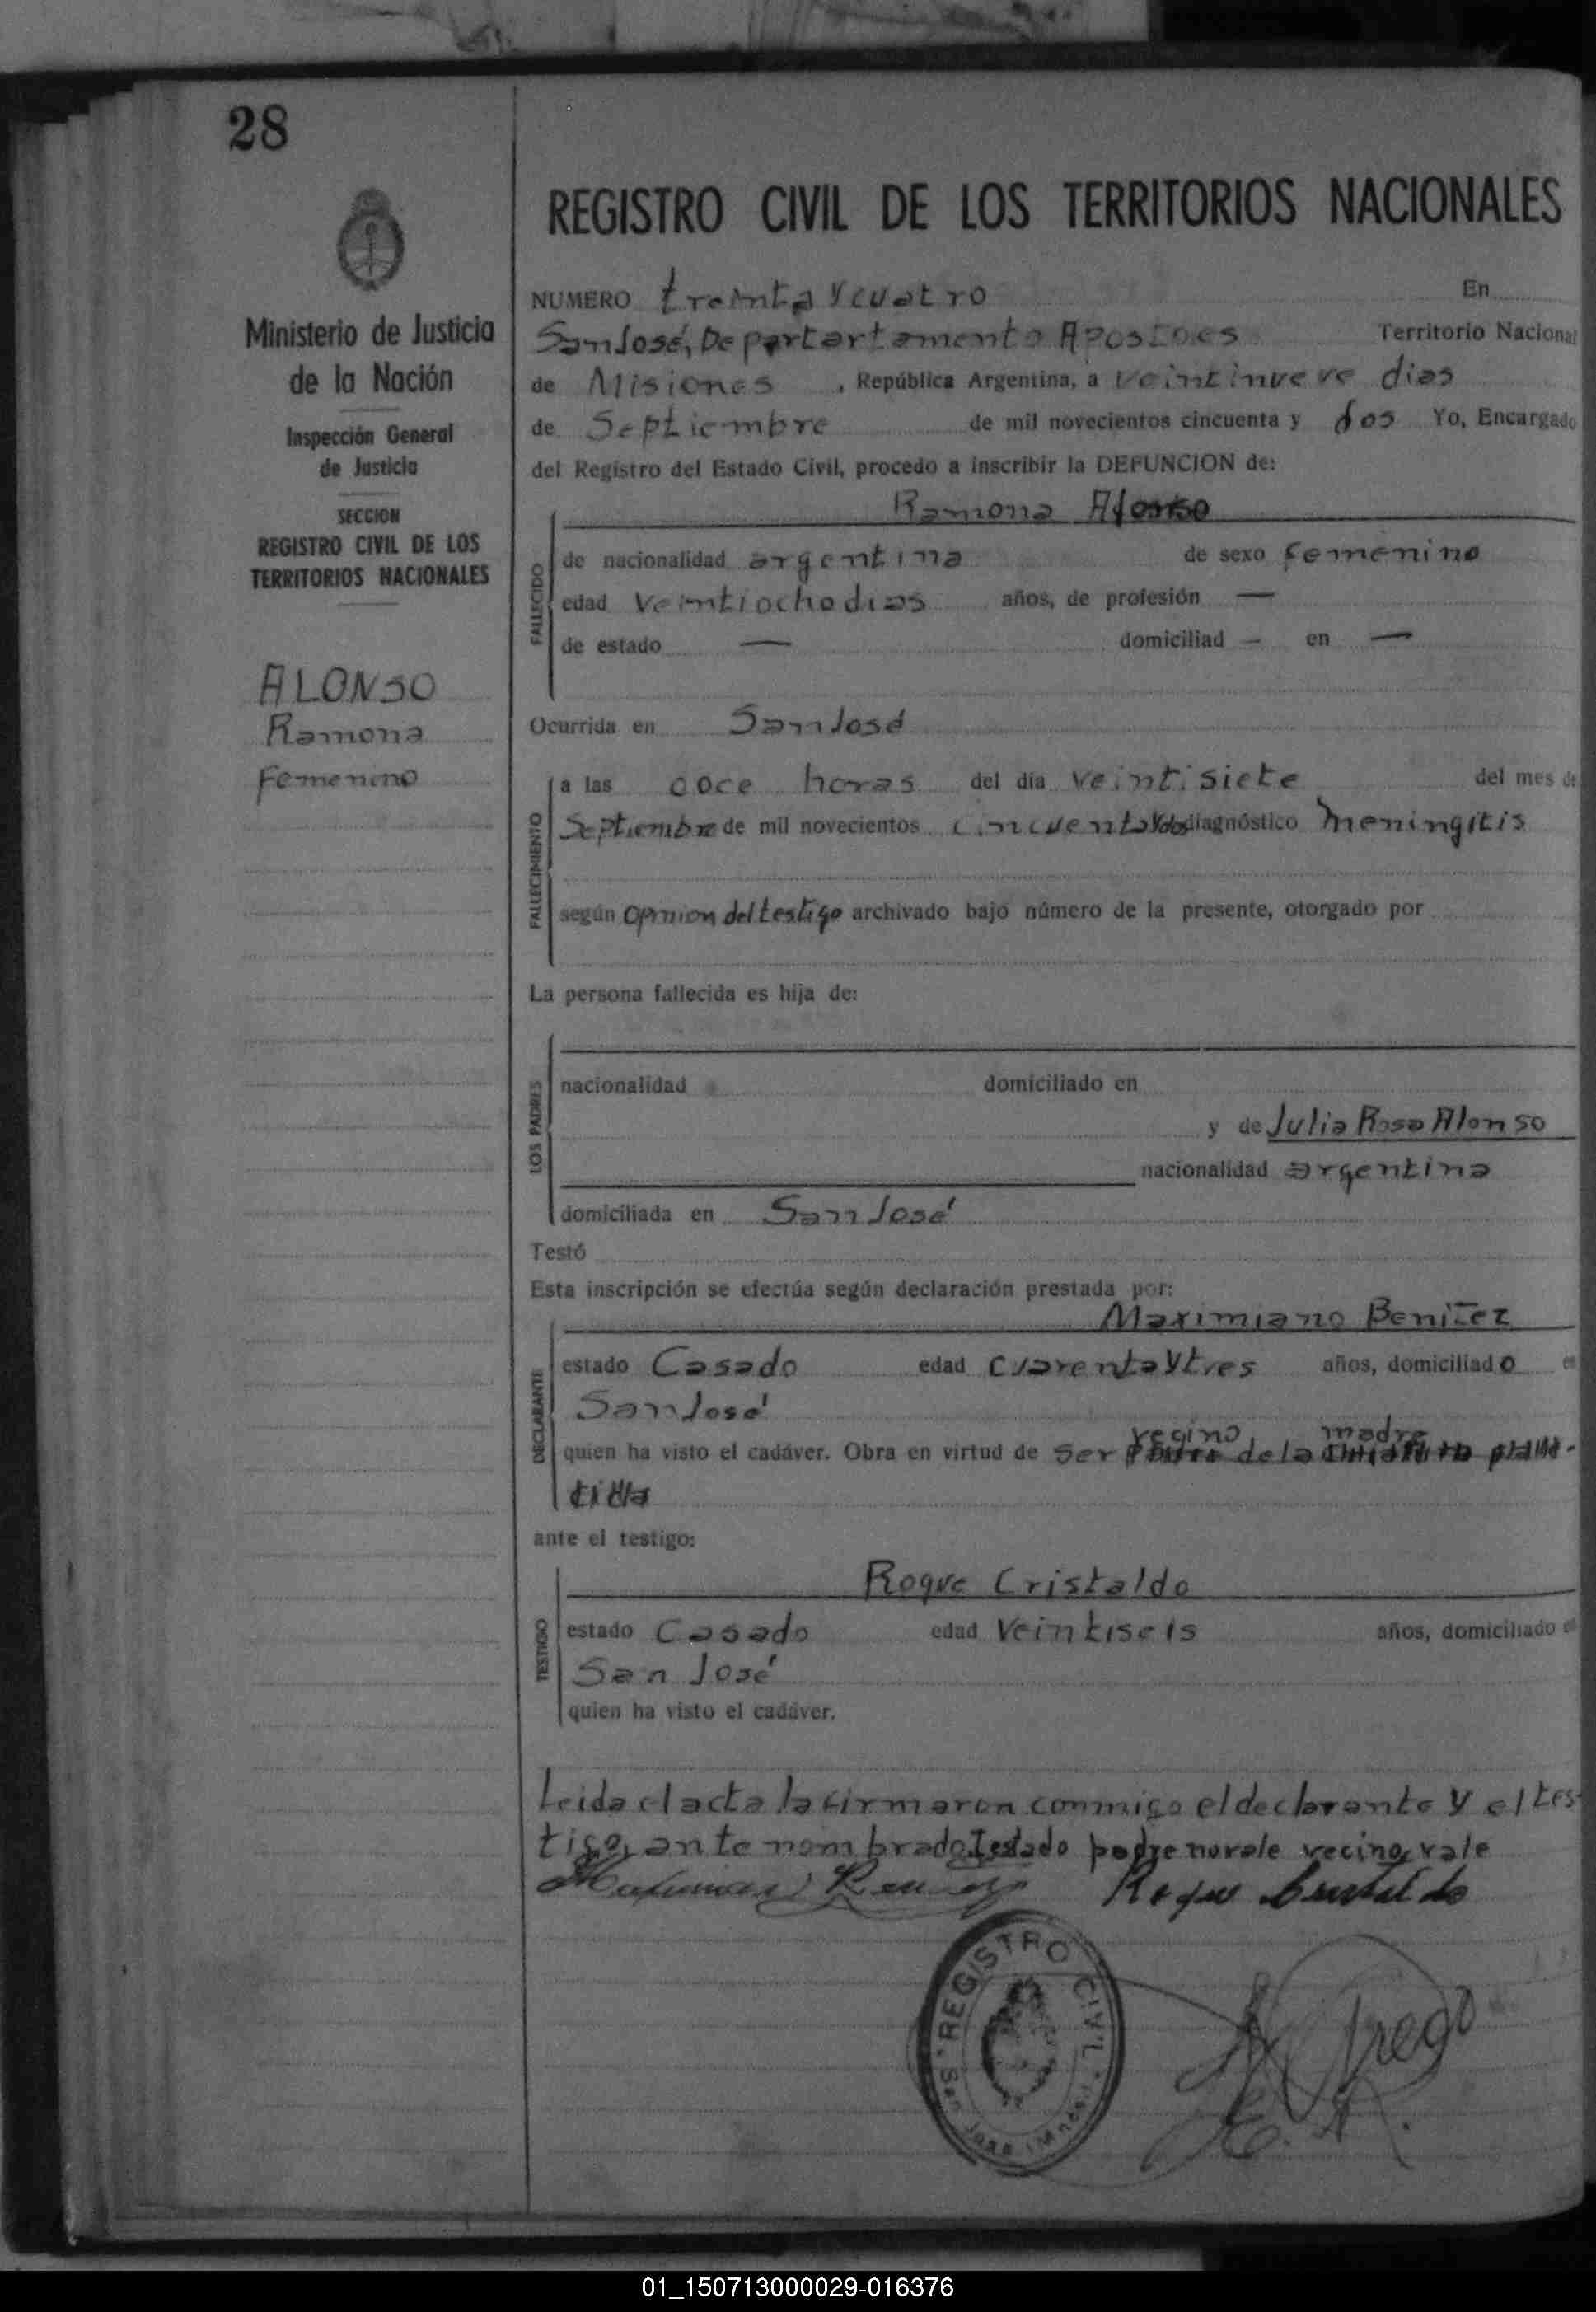 28
Ministerio de Justicia
de la Nación
Inspección General
de Justicia
SECCION
REGISTRO CIVIL DE LOS
TERRITORIOS NACIONALES
ALONSO
Ramona
Femenino
REGISTRO CIVIL DE LOS TERRITORIOS NACIONALES
NUMERO treinta y cuatro En
San José, Departartamento Apostoles Territorio Nacional
de Misiones , República Argentina, a veintinueve dias
de Septiembre de mil novecientos cincuenta y dos Yo, Encargado
del Registro del Estado Civil, procedo a inscribir la DEFUNCION de:
Ramona
FALLECIDO
de nacionalidad argentina de sexo femenino
edad veintiocho dias años, de profesión —
de estado — domiciliad — en —
Ocurrida en San José
FALLECIMIENTO
a las doce horas del día veintisiete del mes de
Septiembre de mil novecientos cincuenta y dos diagnóstico meningitis
según opinion del testigo archivado bajo número de la presente, otorgado por
La persona fallecida es hija de:
LOS PADRES
nacionalidad domiciliado en
y de Julia Rosa Alonso
nacionalidad argentina
domiciliada en San José
Testó
Esta inscripción se efectúa según declaración prestada por:
Maximiano Benitez
DECLARANTE
estado Casado edad cuarenta y tres años, domiciliado en
San José
vecino madre
quien ha visto el cadáver. Obra en virtud de ser padre de la
ante el testigo:
Roque Cristaldo
TESTIGO
estado Casado edad veintiseis años, domiciliado en
San José
quien ha visto el cadáver.
Leida el acta la firmaron conmigo el declarante y el tes-
tigo, ante nombrado Testado padre no vale vecino, vale
Roque Cristaldo
REGISTRO CIVIL
01_150713000029-016376